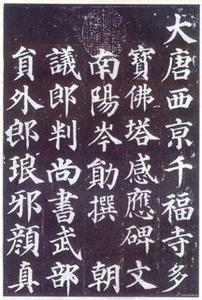 大唐西亰千福寺多
寶佛塔感應碑文
南陽岑勛撰 朝
議郎判尚書武部
貟外郎琅邪顏真